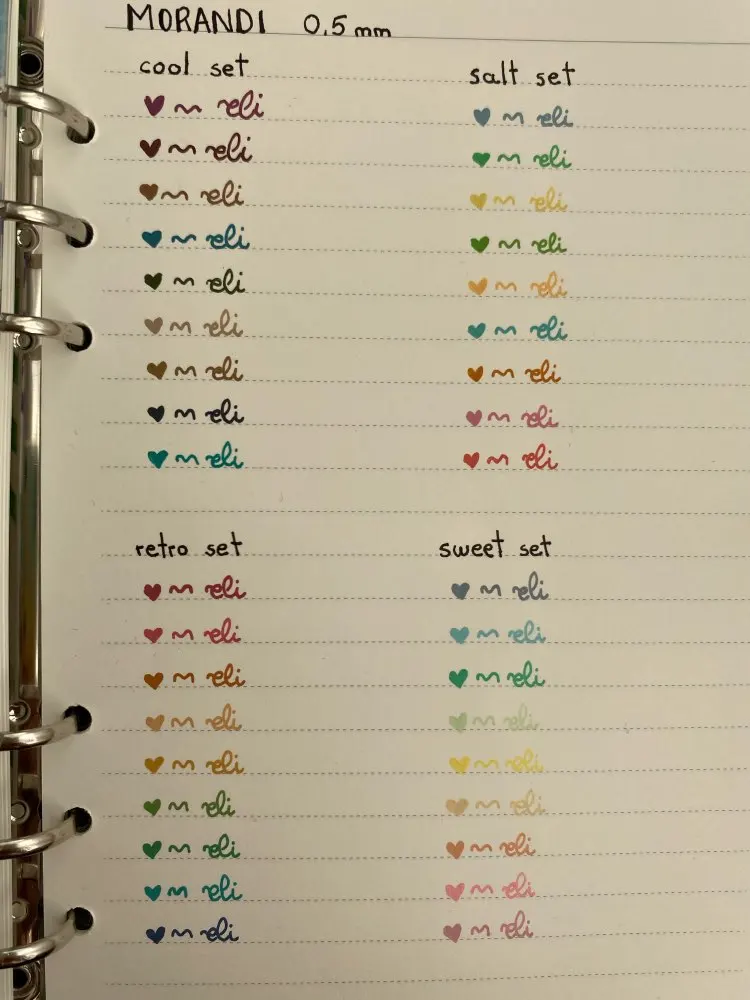 MORANDI 0.5 mm
cool set
eli
eli
eli
eli
eli
eli
eli
eli
eli
salt set
eli
eli
eli
eli
eli
eli
eli
eli
eli
retro set
eli
eli
eli
eli
eli
eli
eli
eli
eli
sweet set
eli
eli
eli
eli
eli
eli
eli
eli
eli